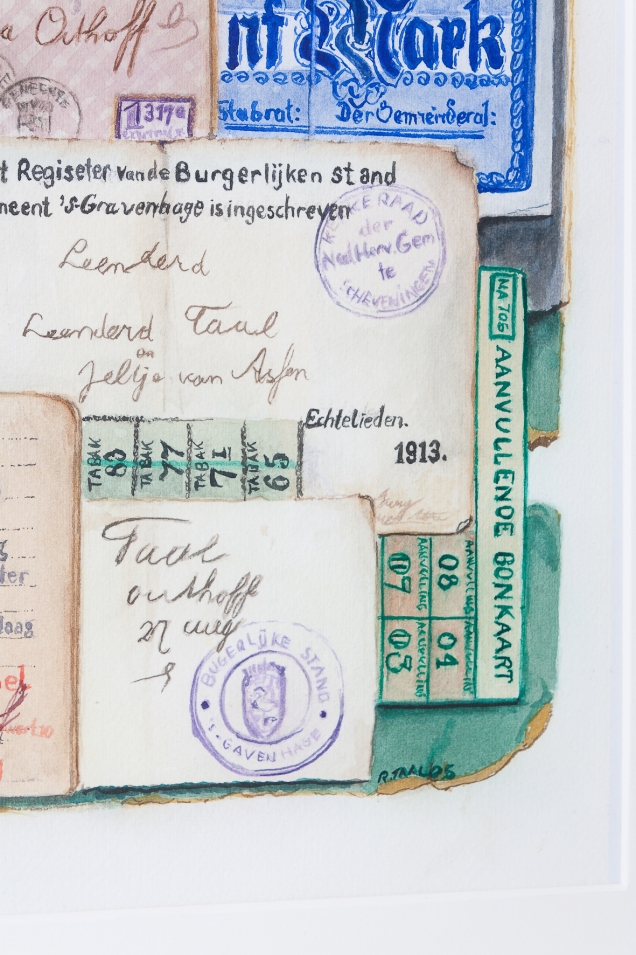 a Outhoff
nf Mark
1317a
Stabrat: Der Gemeinderal:
t Regiseter van de Burgerlijken stand
neent 's-Gravenhage is ingeschreven
KERAAD
der
Ned Herv. Gem
te
SCHEVENINGEN
Leenderd
Leenderd Taal
en
Jeltje van Asfen
Echtelieden.
1913.
TABAK 80
TABAK 77
TABAK 71
TABAK 65
NA 706
AANVULLENDE BONKAART
AANVULLING 07
AANVULLING 08
AANVULLING 03
04
Taal
outhoff
27 aug
BUGERLIJKE STAND
'S-GAVENHAGE
ter
aag
el
R.TAAL 05